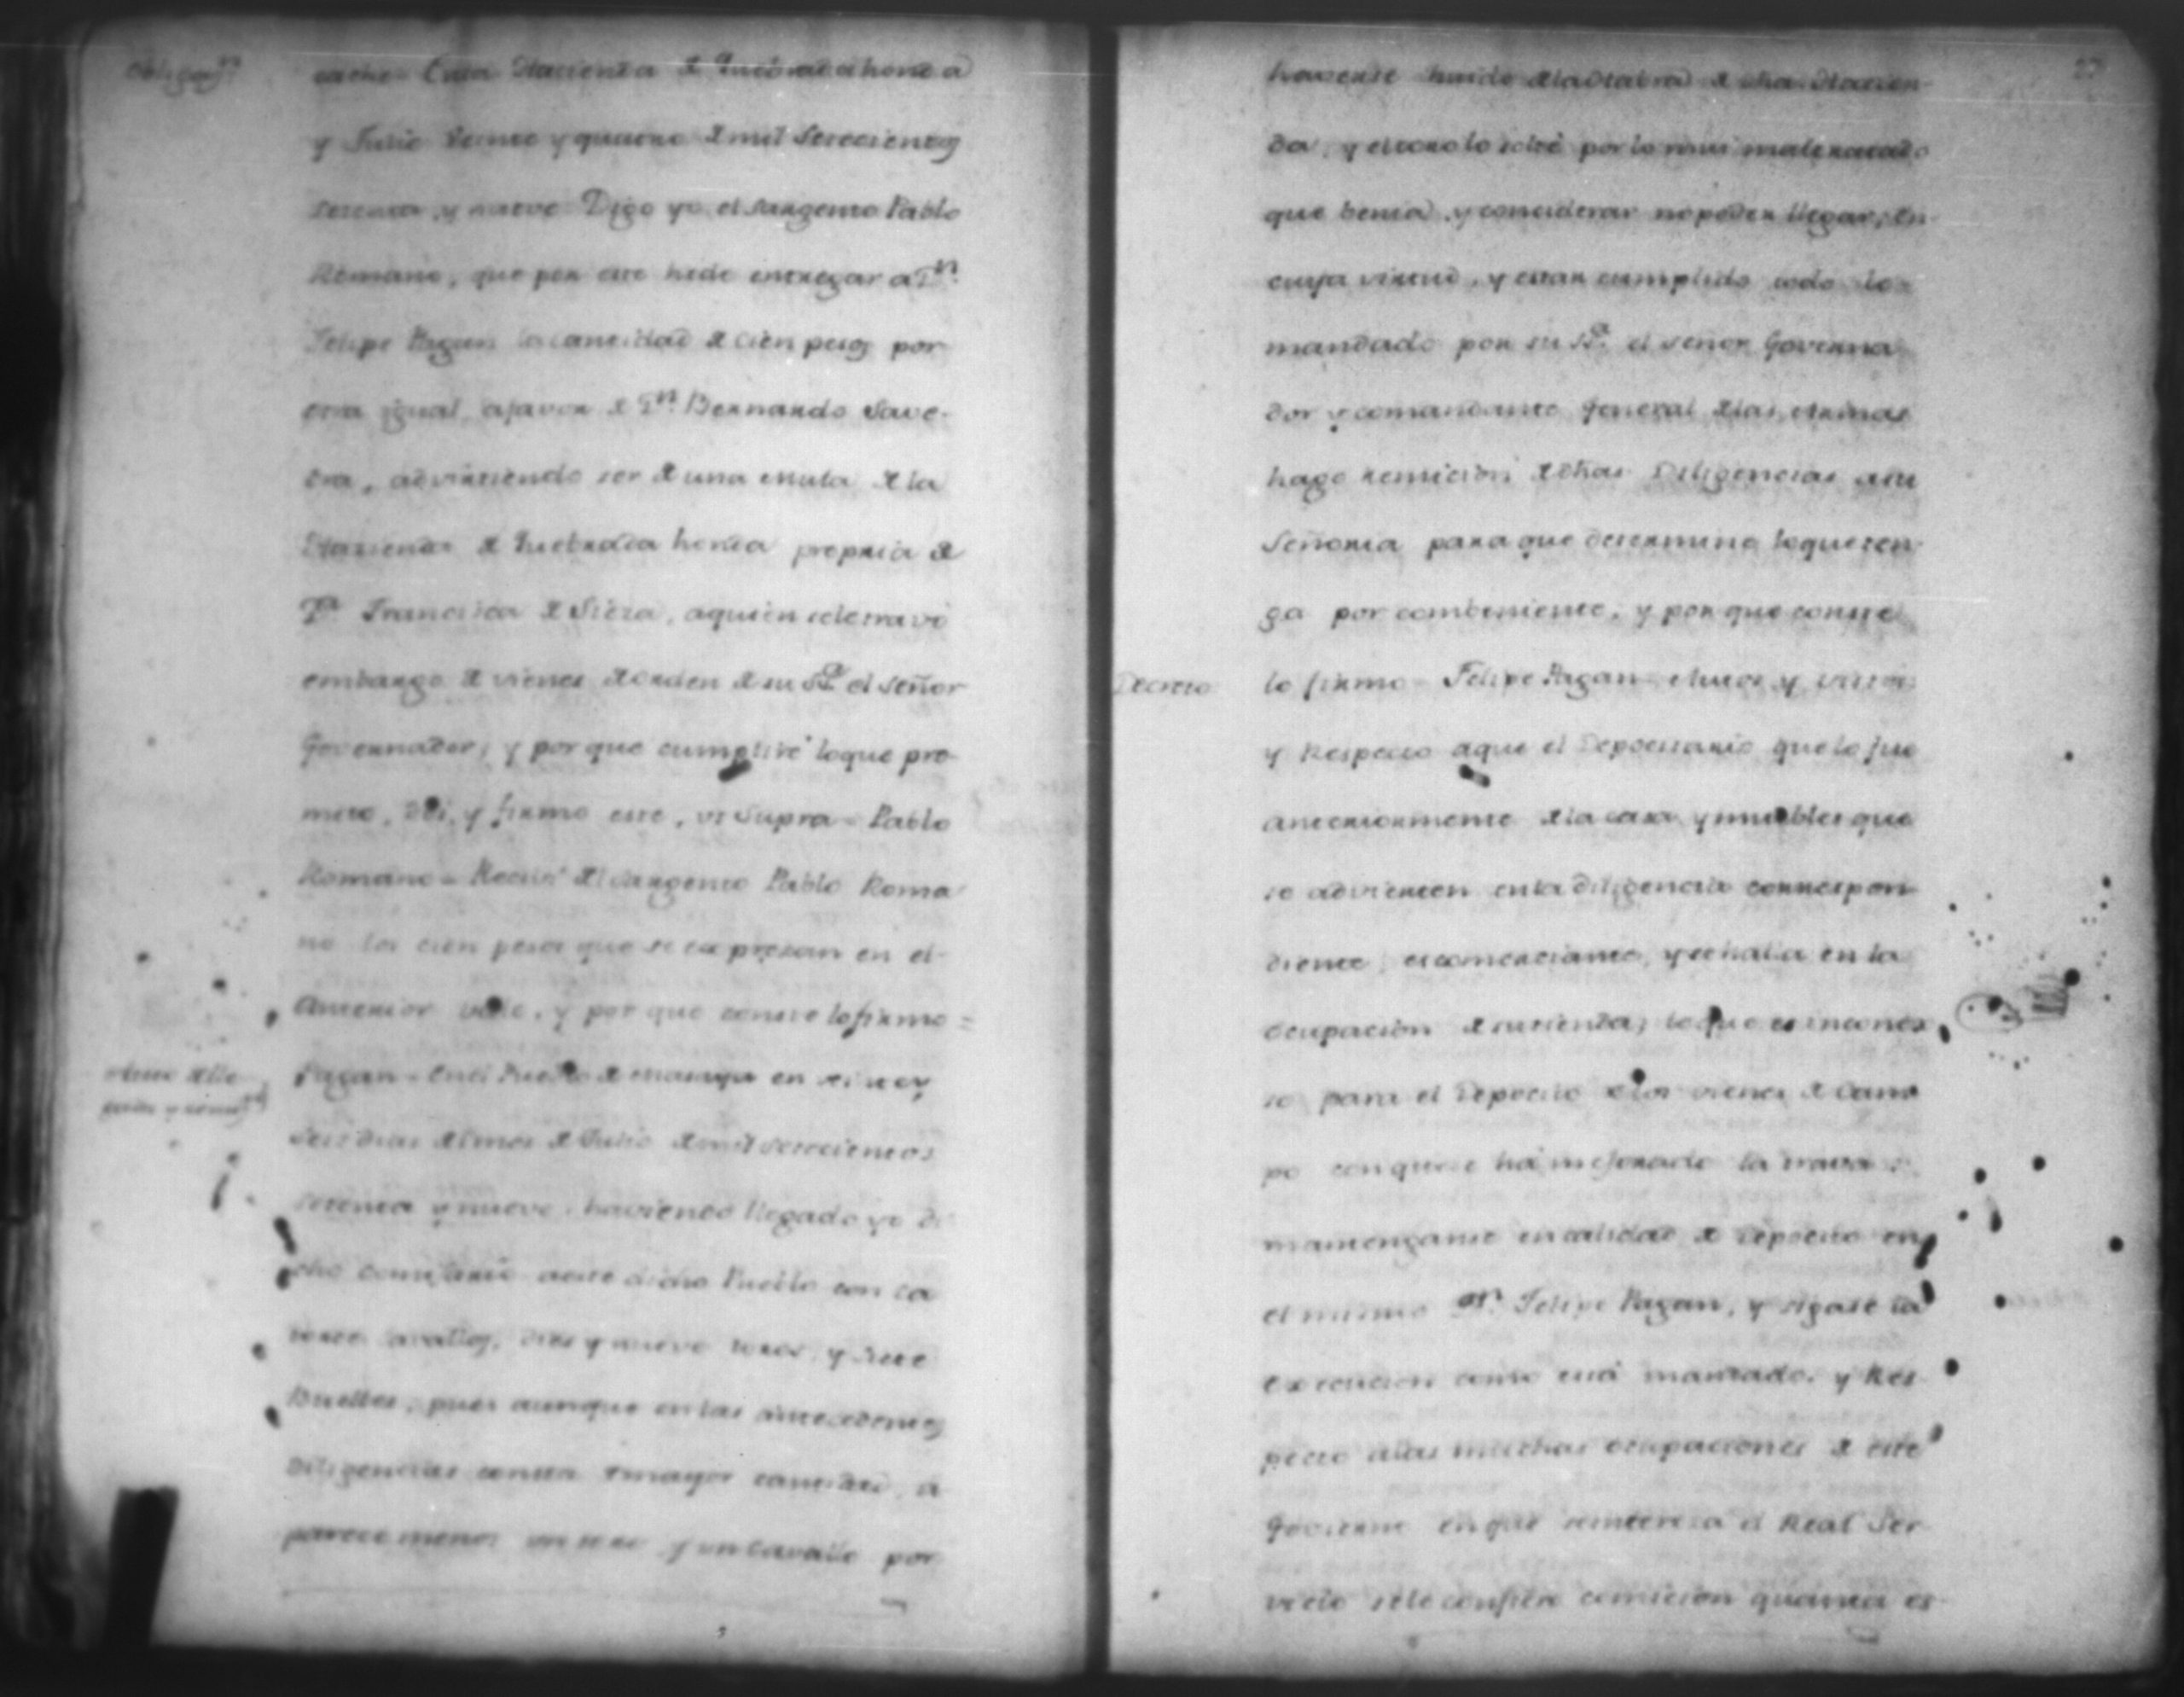 Obligan.n
cache En la Hacienda de Quebradahonda
y Julio veinte y quatro de mil Setecientos
setenta, y nueve Digo yo el Sargento Pablo
Romano, que por este hede entregar a Dn.
Felipe Pagan la cantidad de cien pesos por
otra igual, afavor de Dn. Bernardo Save-
dra, advirtiendo ser de una Mula de la
Hacienda de Quebrada honda propria de
Da. Francisca de Sieza, aquien sele travó
embargo de vienes de orden de su Sa. el señor
Governador; y por que cumpliré loque pro-
meto, dói, y firmo este, vt Supra = Pablo
Romano = Recivi del Sargento Pablo Roma
no los cien pesos que se expresan en el
Anterior vale, y por que conste lo firmo =
Pagan = En el Pueblo de en veinte y
Seis dias del mes de Julio de mil setecientos
setenta y nueve, haviendo llegado yo di
cho Comisario aeste dicho Pueblo con ca
torce cavallos, dies y nueve toros, y siete
Bueltes, pues aunque en las antecedentes
Diligencias consta de mayor cantidad, a
parece menos un toro y un Cavallo por
23
haverse huido de la de dha. Hacien-
da, y el toro lo solté por lo mui maltratado
que benia, y conciderar no poder llegar; En
cuya virtud, y estar cumplido todo lo
mandado por su Sa. el señor Governa
dor y comandante General de las Armas
hago remicion de dhas Diligencias asu
Señoria para que determine loqueten
ga por combeniente, y por que conste
Decreto
lo firmo = Felipe Pagan = Autos y vistos
y Respecto aque el Depocitario que lo fue
anteriormente de la casa y muebles que
se advierten en la diligencia correspon
diente, es comerciante, y se halla en la
ocupacion de su tienda; loque es incones
so para el Depocito de los vienes de Cam
po conque se há mejorado la trava:
mantenganse en calidad de Depocito en
el mismo Dn. Felipe Pagan, y sigase la
execucion como está mandado. y Res-
pecto alas muchas ocupaciones de este
Govierno en que seinteresa el Real Ser-
vicio sele confiere comicion quanta es